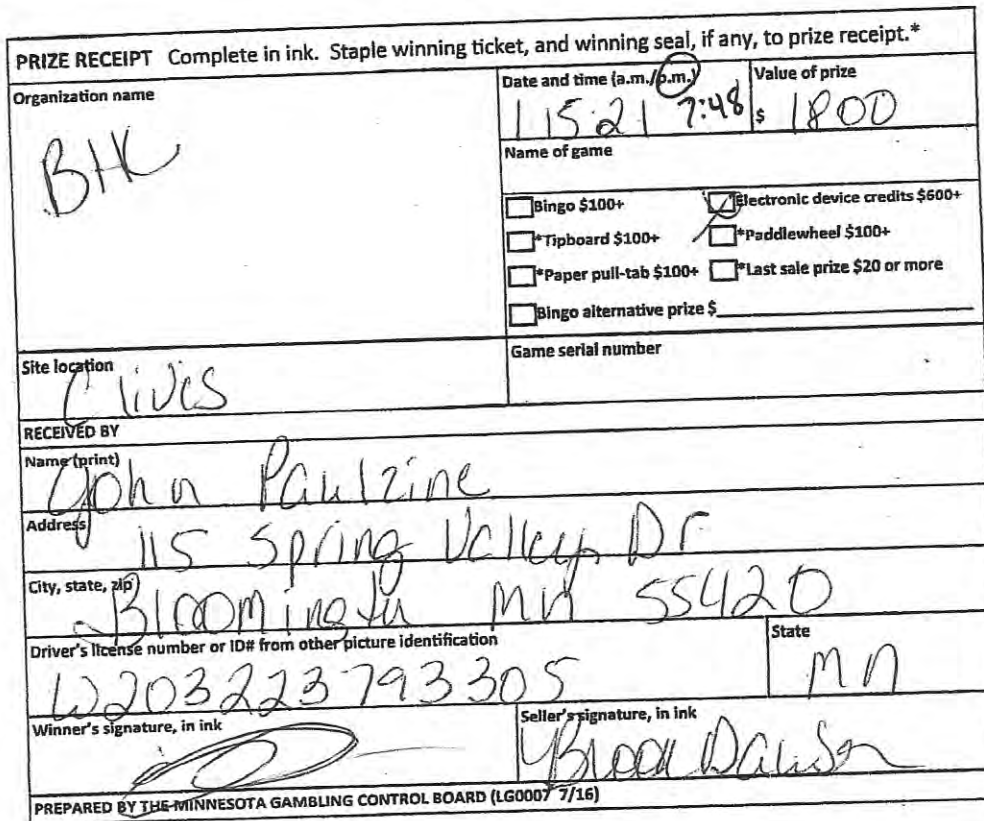 PRIZE RECEIPT Complete in ink. Staple winning ticket, and winning seal, if any, to prize receipt.*
Organization name
BHK
Date and time (a.m./p.m.)
1 15 21 7:48
Value of prize
$ 1800
Name of game
Bingo $100+
Electronic device credits $600+
*Tipboard $100+
*Paddlewheel $100+
*Paper pull-tab $100+
*Last sale prize $20 or more
Bingo alternative prize $
Site location
Clives
Game serial number
RECEIVED BY
Name (print)
John Paulzine
Address
115 Spring Valley Dr
City, state, zip
Bloomington MN 55420
Driver's license number or ID# from other picture identification
W203223793305
State
MN
Winner's signature, in ink
Seller's signature, in ink
PREPARED BY THE MINNESOTA GAMBLING CONTROL BOARD (LG0007 7/16)